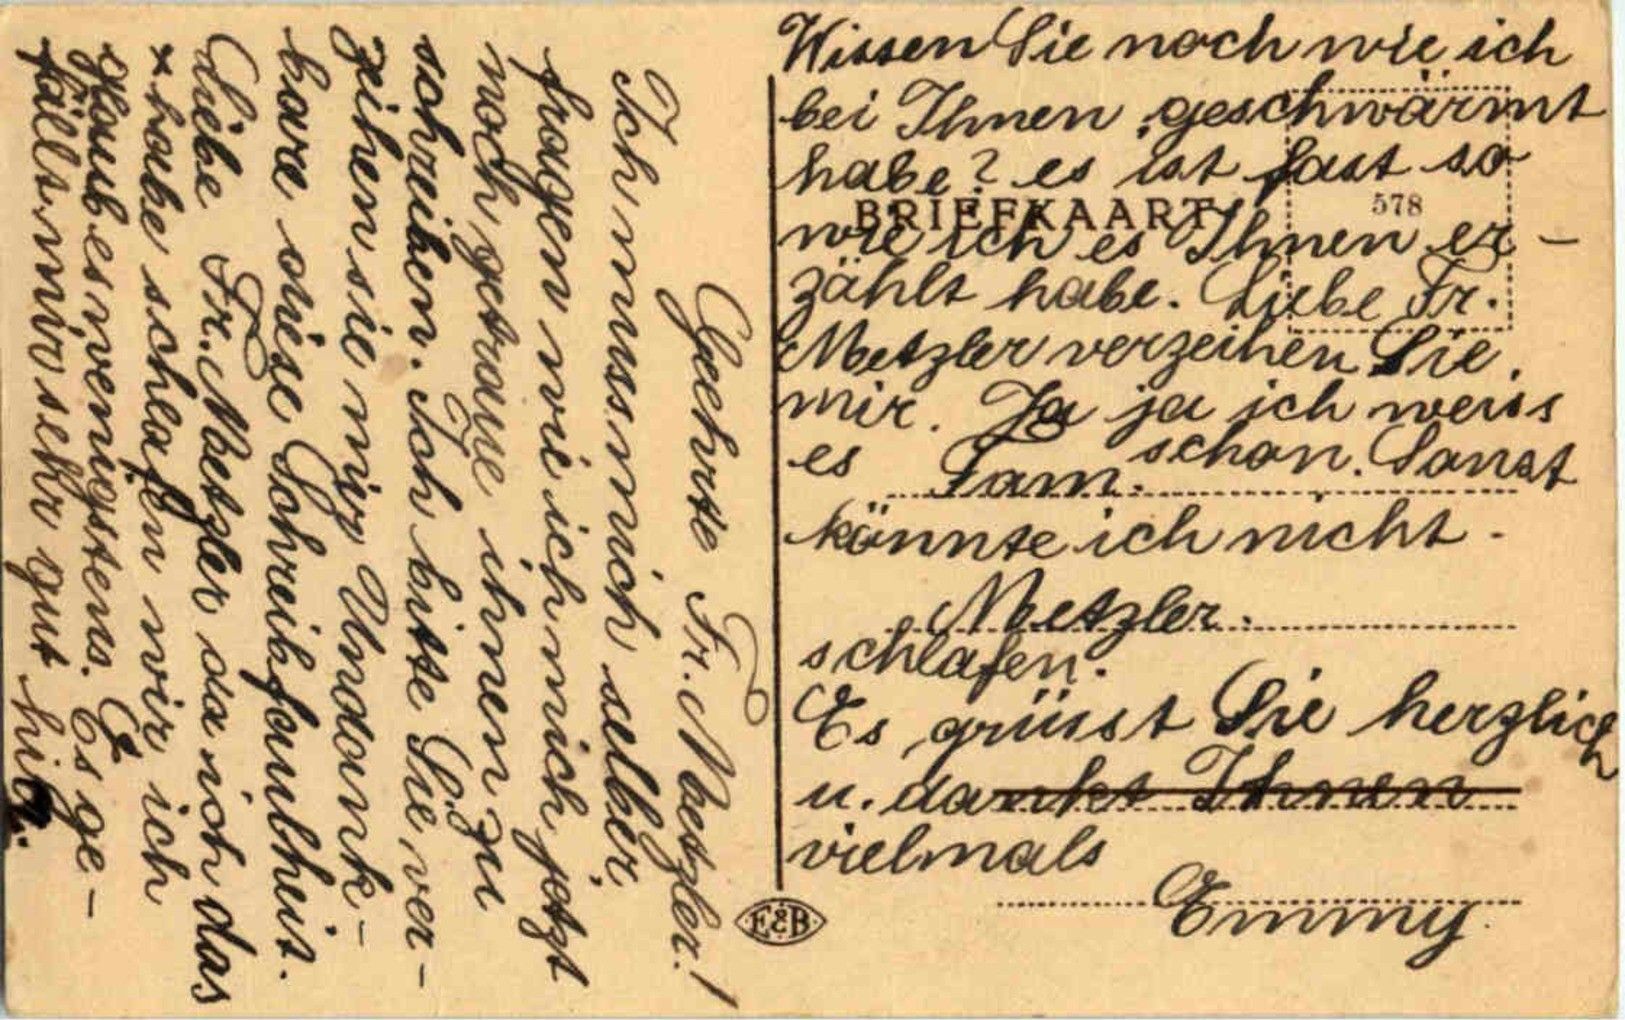 Geehrte Fr. Metzler!
Ich muss mich selber
fragen wie ich mich jetzt
noch getraue ihnen zu
schreiben. Ich bitte Sie ver-
zeihen sie mir Undank-
bare diese Schreibfaulheit.
Liebe Fr. Metzler da ich das
x habe schlafen wir, ich
glaub es wenigstens. Es ge-
fällt mir sehr gut hir.
Wissen Sie noch wie ich
bei Ihnen geschwärmt
habe? es ist fast so
BRIEFKAART
578
wie ich es Ihnen er-
zählt habe. Liebe Fr.
Metzler verzeihen Sie
mir. Ja ja ich weiss
es schon. Sonst
Fam.
könnte ich nicht
Metzler.
schlafen.
Es grüsst Sie herzlich
u. dankt Ihnen
vielmals
Emmy.
E&B